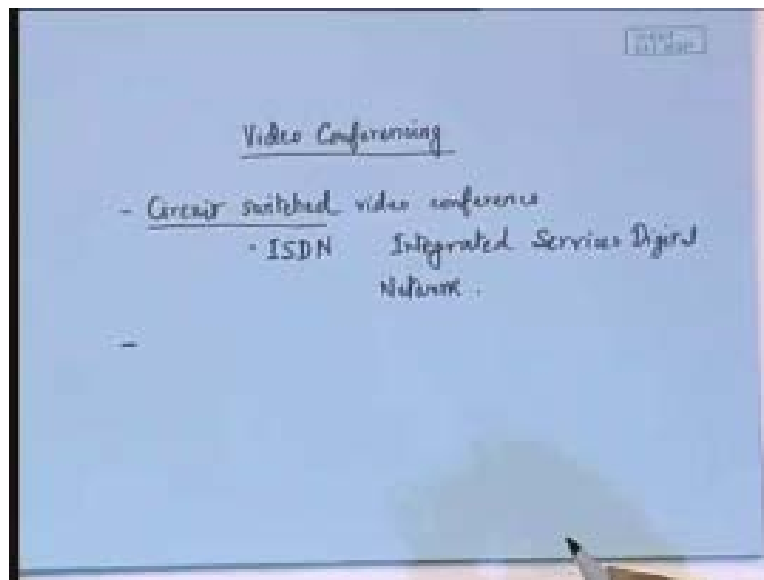 Video Conferencing
- Circuit switched video conference
• ISDN Integrated Services Digital
Network.
-